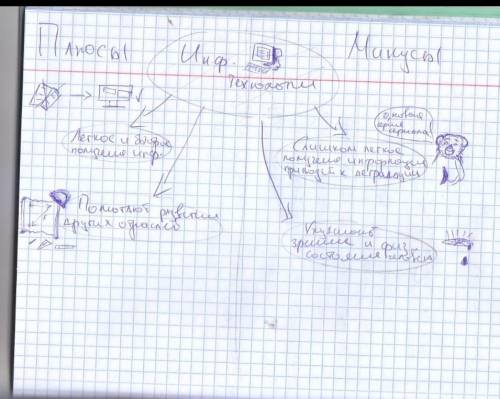 Плюсы
Инф.
технологии
Минусы
Легкое и быстрое
получение инф.
Слишком легкое
получение информации
приводит к деградации
новая
серия
сериала
Помогают развитии
других отраслей
Ухудшают
зрение и физ.
состояние